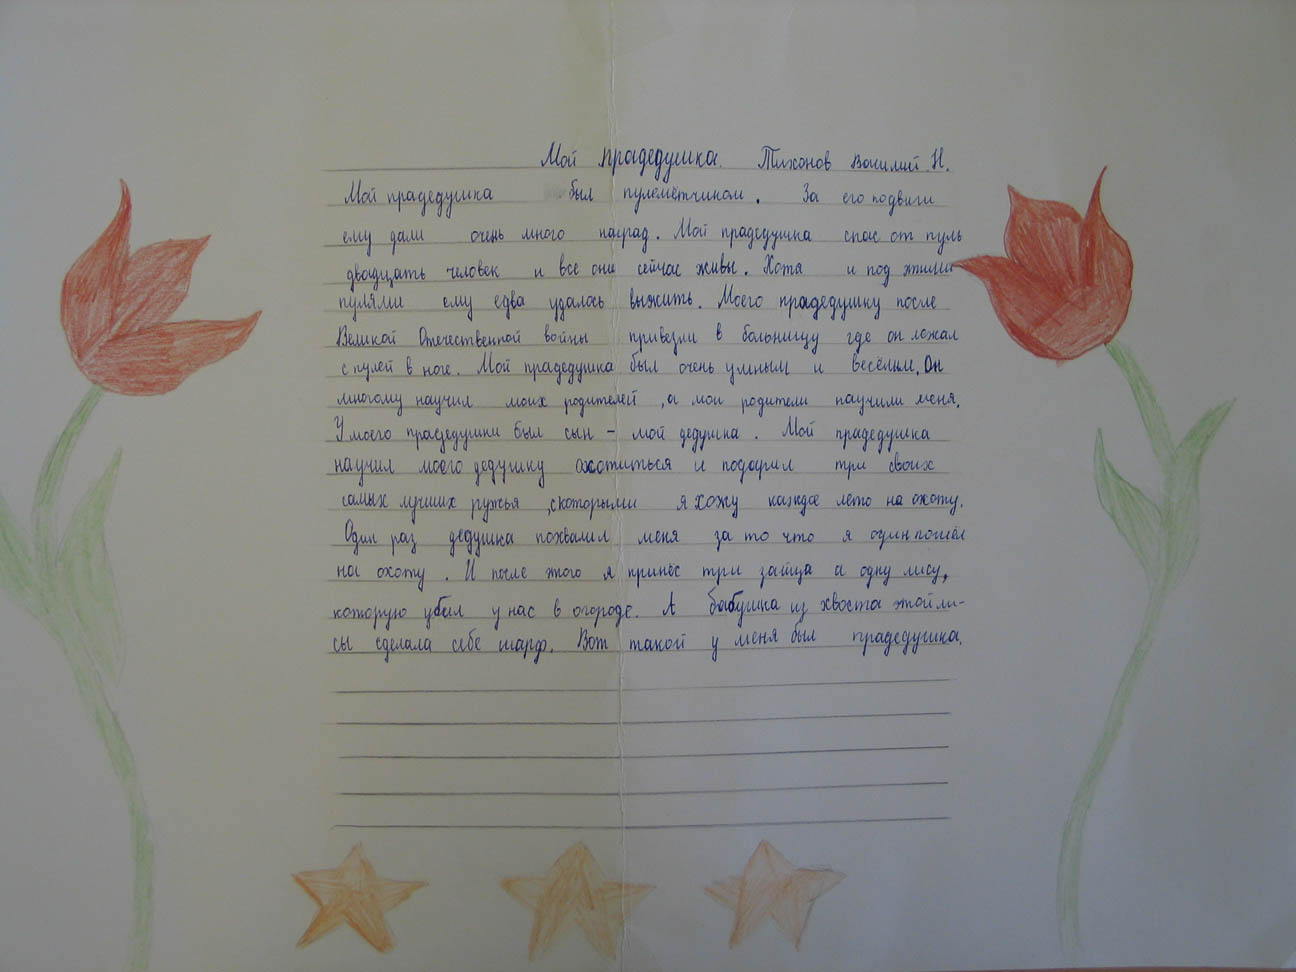 Мой прадедушка. Тихонов Василий. Н.
Мой прадедушка был пулемётчиком. За его подвиги
ему дали очень много наград. Мой прадедушка спас от пуль
двадцать человек и все они сейчас живы. Хотя и под этими
пулями ему едва удалось выжить. Моего прадедушку после
Великой Отечественной войны привезли в больницу где он лежал
с пулей в ноге. Мой прадедушка был очень умным и весёлым. Он
многому научил моих родителей, а мои родители научили меня.
У моего прадедушки был сын - мой дедушка. Мой прадедушка
научил моего дедушку охотиться и подарил три своих
самых лучших ружья, скоторыми я хожу каждое лето на охоту.
Один раз дедушка похвалил меня за то что я один пошёл
на охоту. И после этого я принёс три зайца и одну лису,
которую убил у нас в огороде. А бабушка из хвоста этой ли-
сы сделала себе шарф. Вот такой у меня был прадедушка.